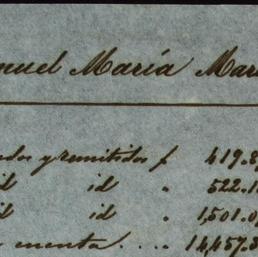 nuel María Mar
dos y remitidos p 419.8
id id " 522.1
id id " 1,501.0
cuenta .... 14,457.3